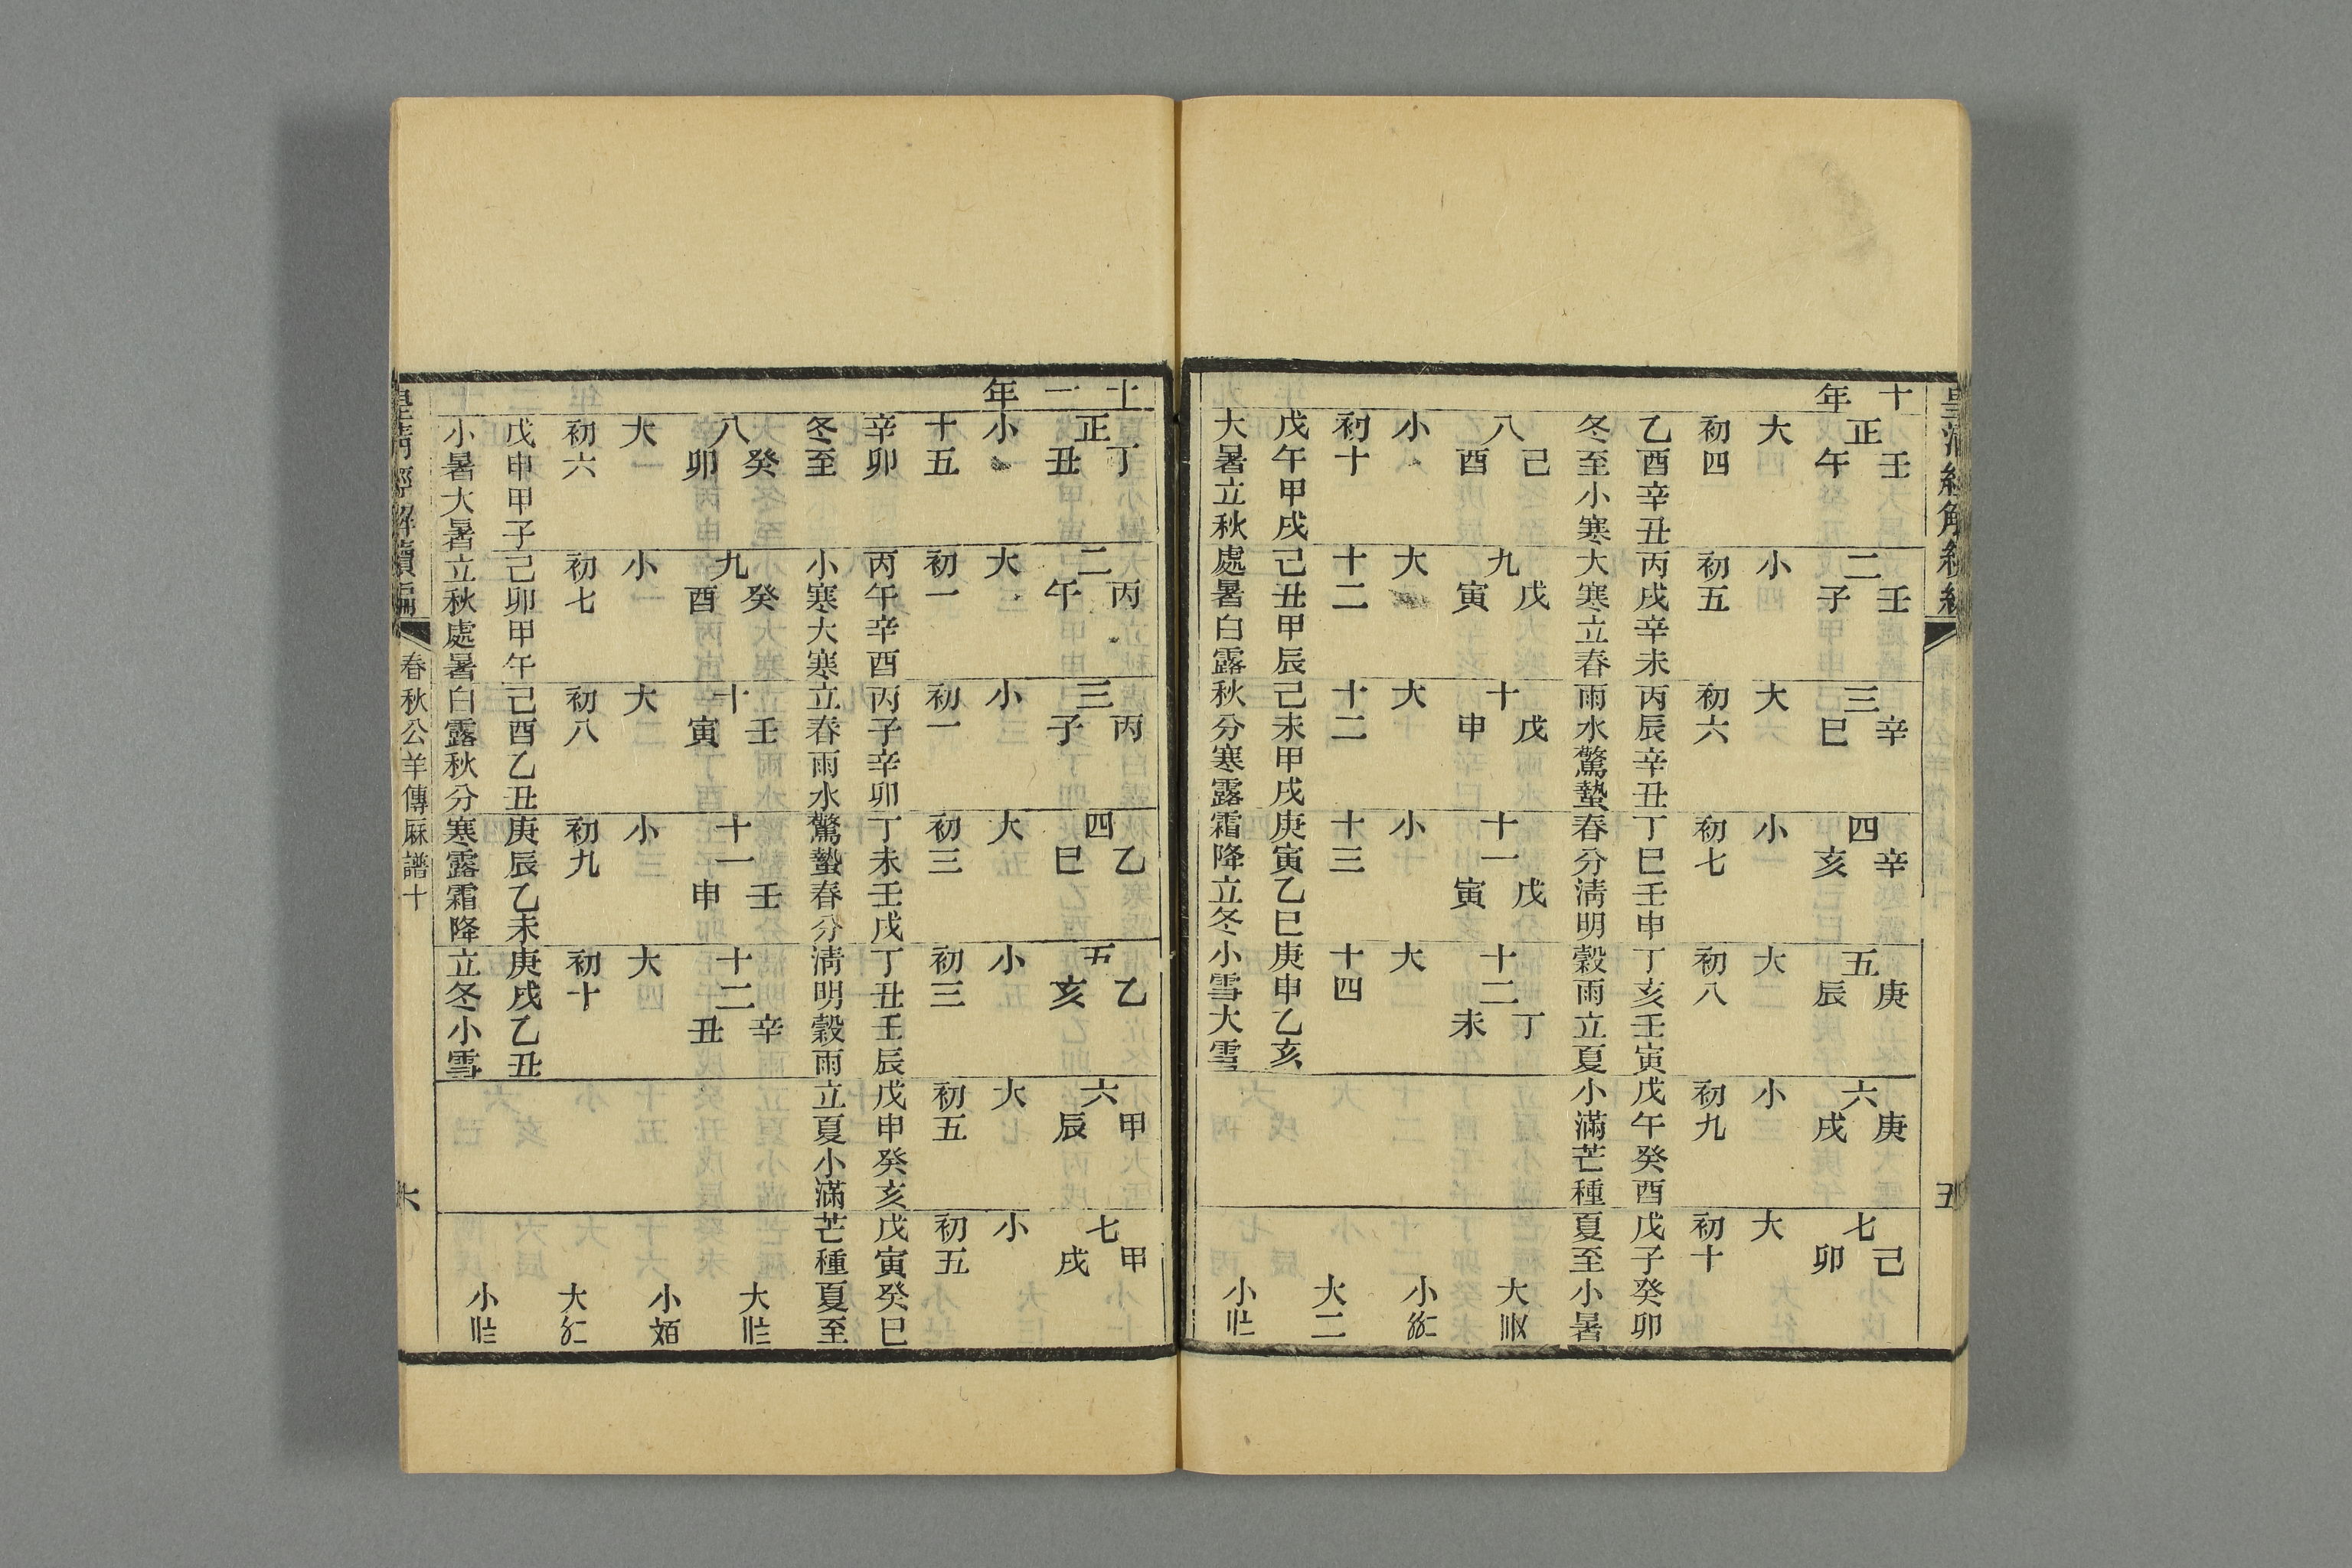 皇清經解續編
五
十年
正壬午 二壬子 三辛巳 四辛亥 五庚辰 六庚戌 七己卯
大 小 大 小 大 小 大
初四 初五 初六 初七 初八 初九 初十
乙酉辛丑丙戌辛未丙辰辛丑丁巳壬申丁亥壬寅戊午癸酉戊子癸卯
冬至小寒大寒立春雨水驚蟄春分清明穀雨立夏小滿芒種夏至小暑
八己酉 九戊寅 十戊申 十一戊寅 十二丁未
大
小 大 大 小 大
小
初十 十二 十二 十三 十四
大二
戊午甲戌己丑甲辰己未甲戌庚寅乙巳庚申乙亥
大暑立秋處暑白露秋分寒露霜降立冬小雪大雪
小
十一年
正丁丑 二丙午 三丙子 四乙巳 五乙亥 六甲辰 七甲戌
小 大 小 大 小 大 小
十五 初一 初一 初三 初三 初五 初五
辛卯丙午辛酉丙子辛卯丁未壬戌丁丑壬辰戊申癸亥戊寅癸巳
冬至小寒大寒立春雨水驚蟄春分清明穀雨立夏小滿芒種夏至
八癸卯 九癸酉 十壬寅 十一壬申 十二辛丑
大
大 小 大 小 大
小
初六 初七 初八 初九 初十
大
戊申甲子己卯甲午己酉乙丑庚辰乙未庚戌乙丑
小暑大暑立秋處暑白露秋分寒露霜降立冬小雪
小
皇清經解續編
春秋公羊傳厤譜十
六